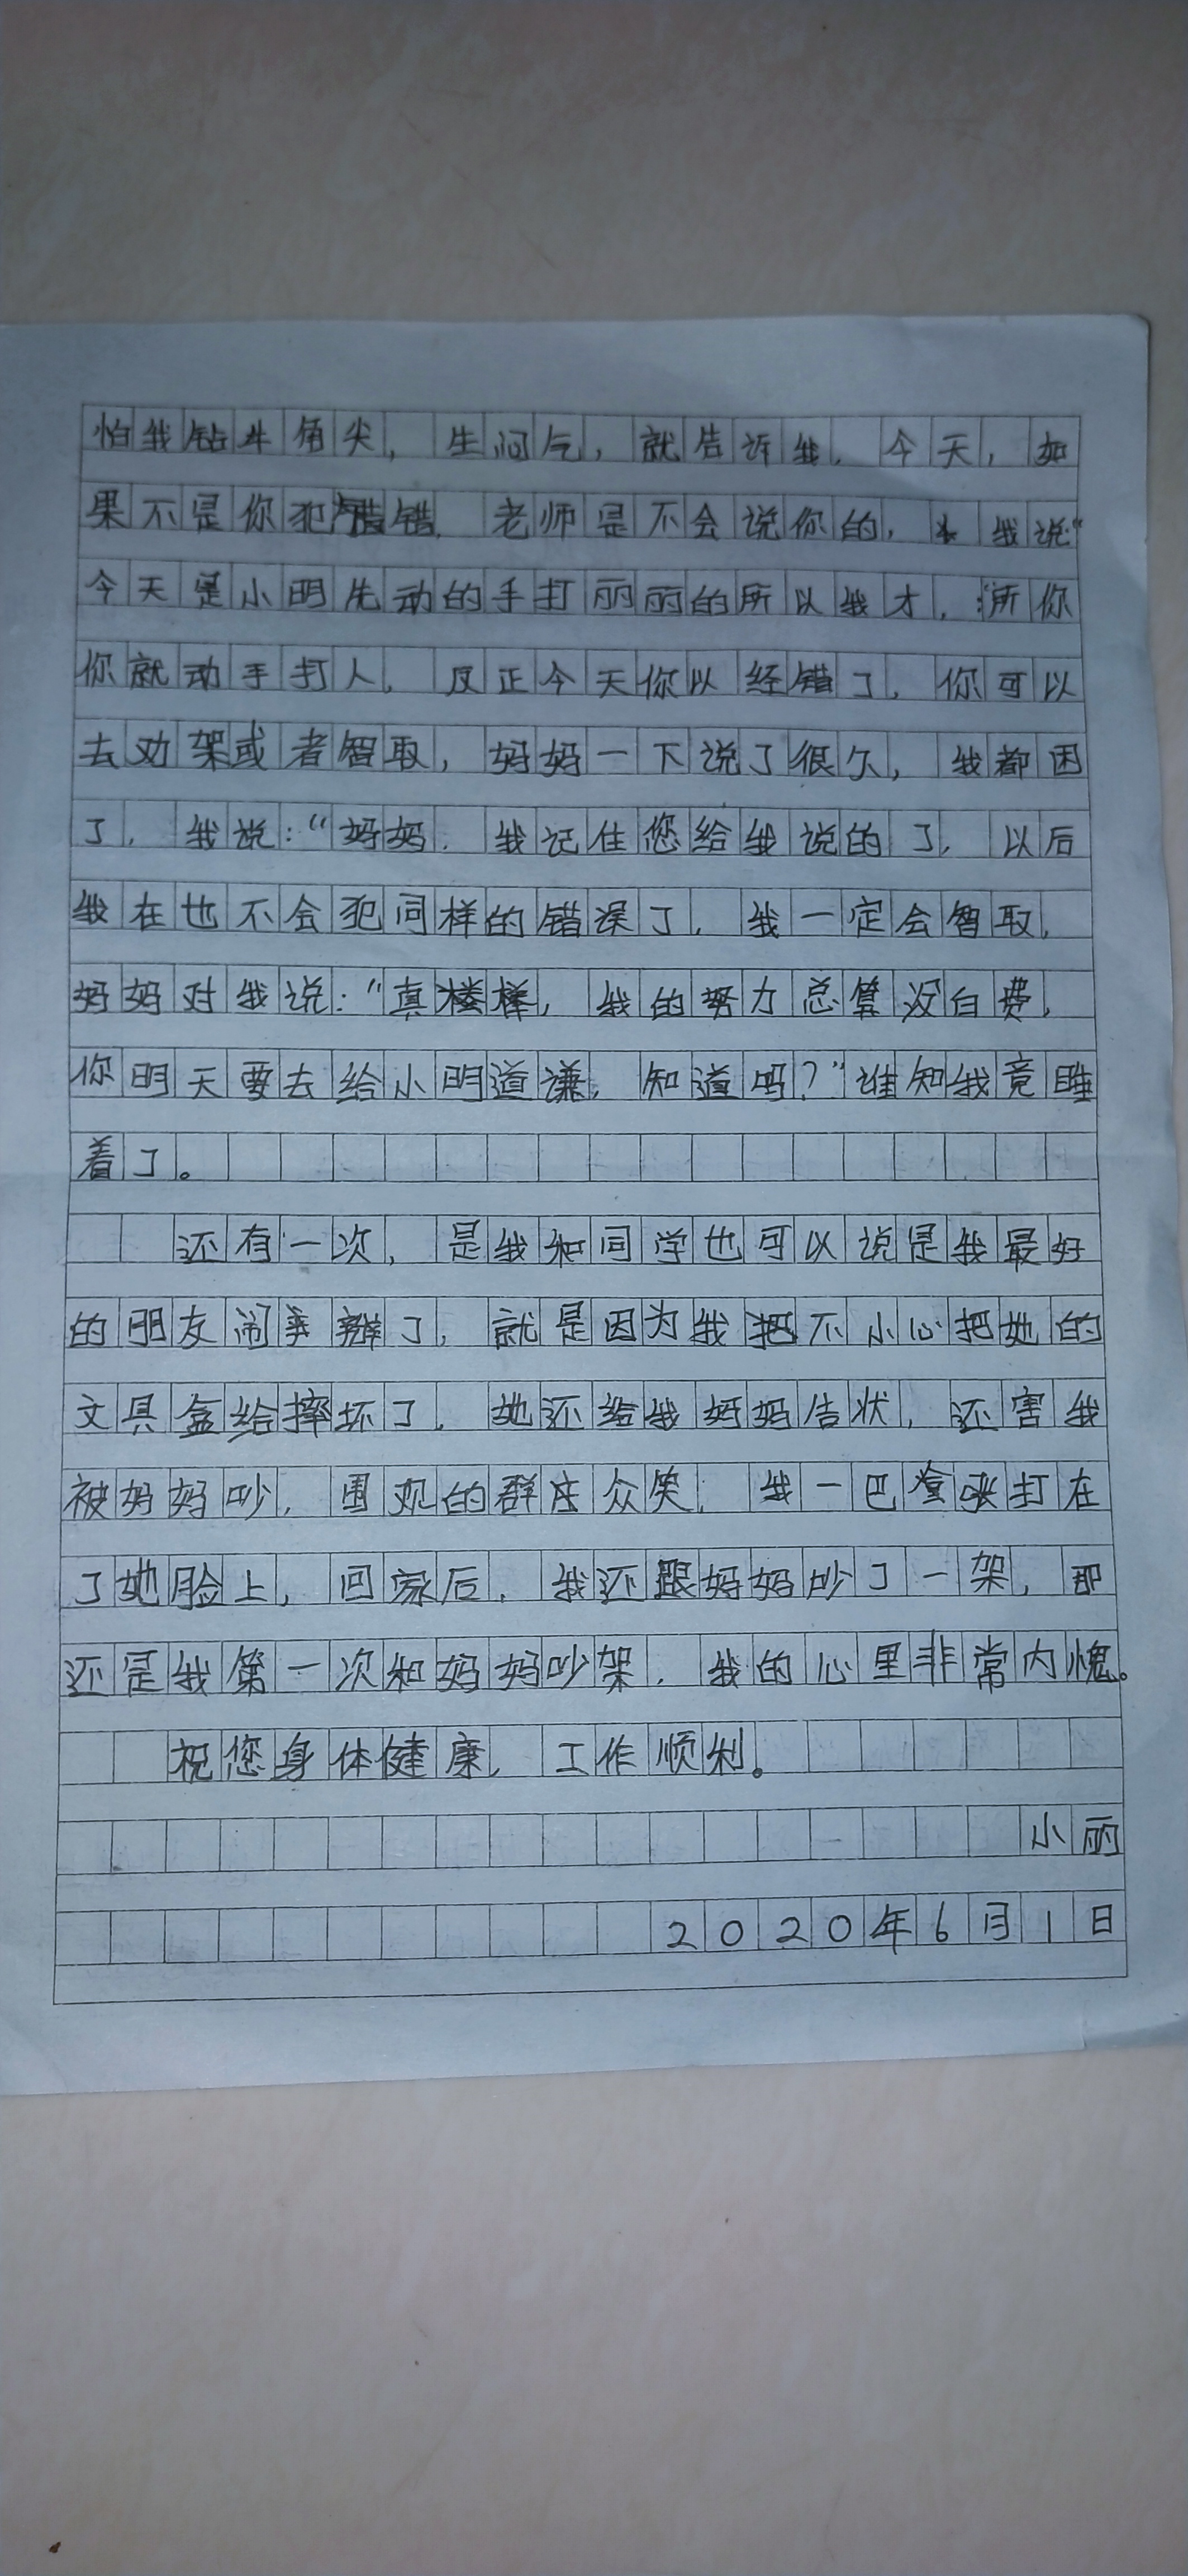 怕我钻牛角尖，生闷气，就告诉我，今天，如
果不是你犯错，老师是不会说你的，我说“
今天是小明先动的手打丽丽的所以我才，“所你
你就动手打人，反正今天你以经错了，你可以
去劝架或者智取，妈妈一下说了很久，我都困
了，我说：“妈妈，我记住您给我说的了，以后
我在也不会犯同样的错误了，我一定会智取，
妈妈对我说：“真棒，我的努力总算没白费，
你明天要去给小明道谦，知道吗？”谁知我竟睡
着了。
还有一次，是我和同学也可以说是我最好
的朋友闹掰了，就是因为我不小心把她的
文具盒给摔坏了，她还给我妈妈告状，还害我
被妈妈吵，围观的群众笑，我一巴掌打在
了她脸上，回家后，我还跟妈妈吵了一架，那
还是我第一次和妈妈吵架，我的心里非常内愧。
祝您身体健康，工作顺利。
小丽
2020年6月1日